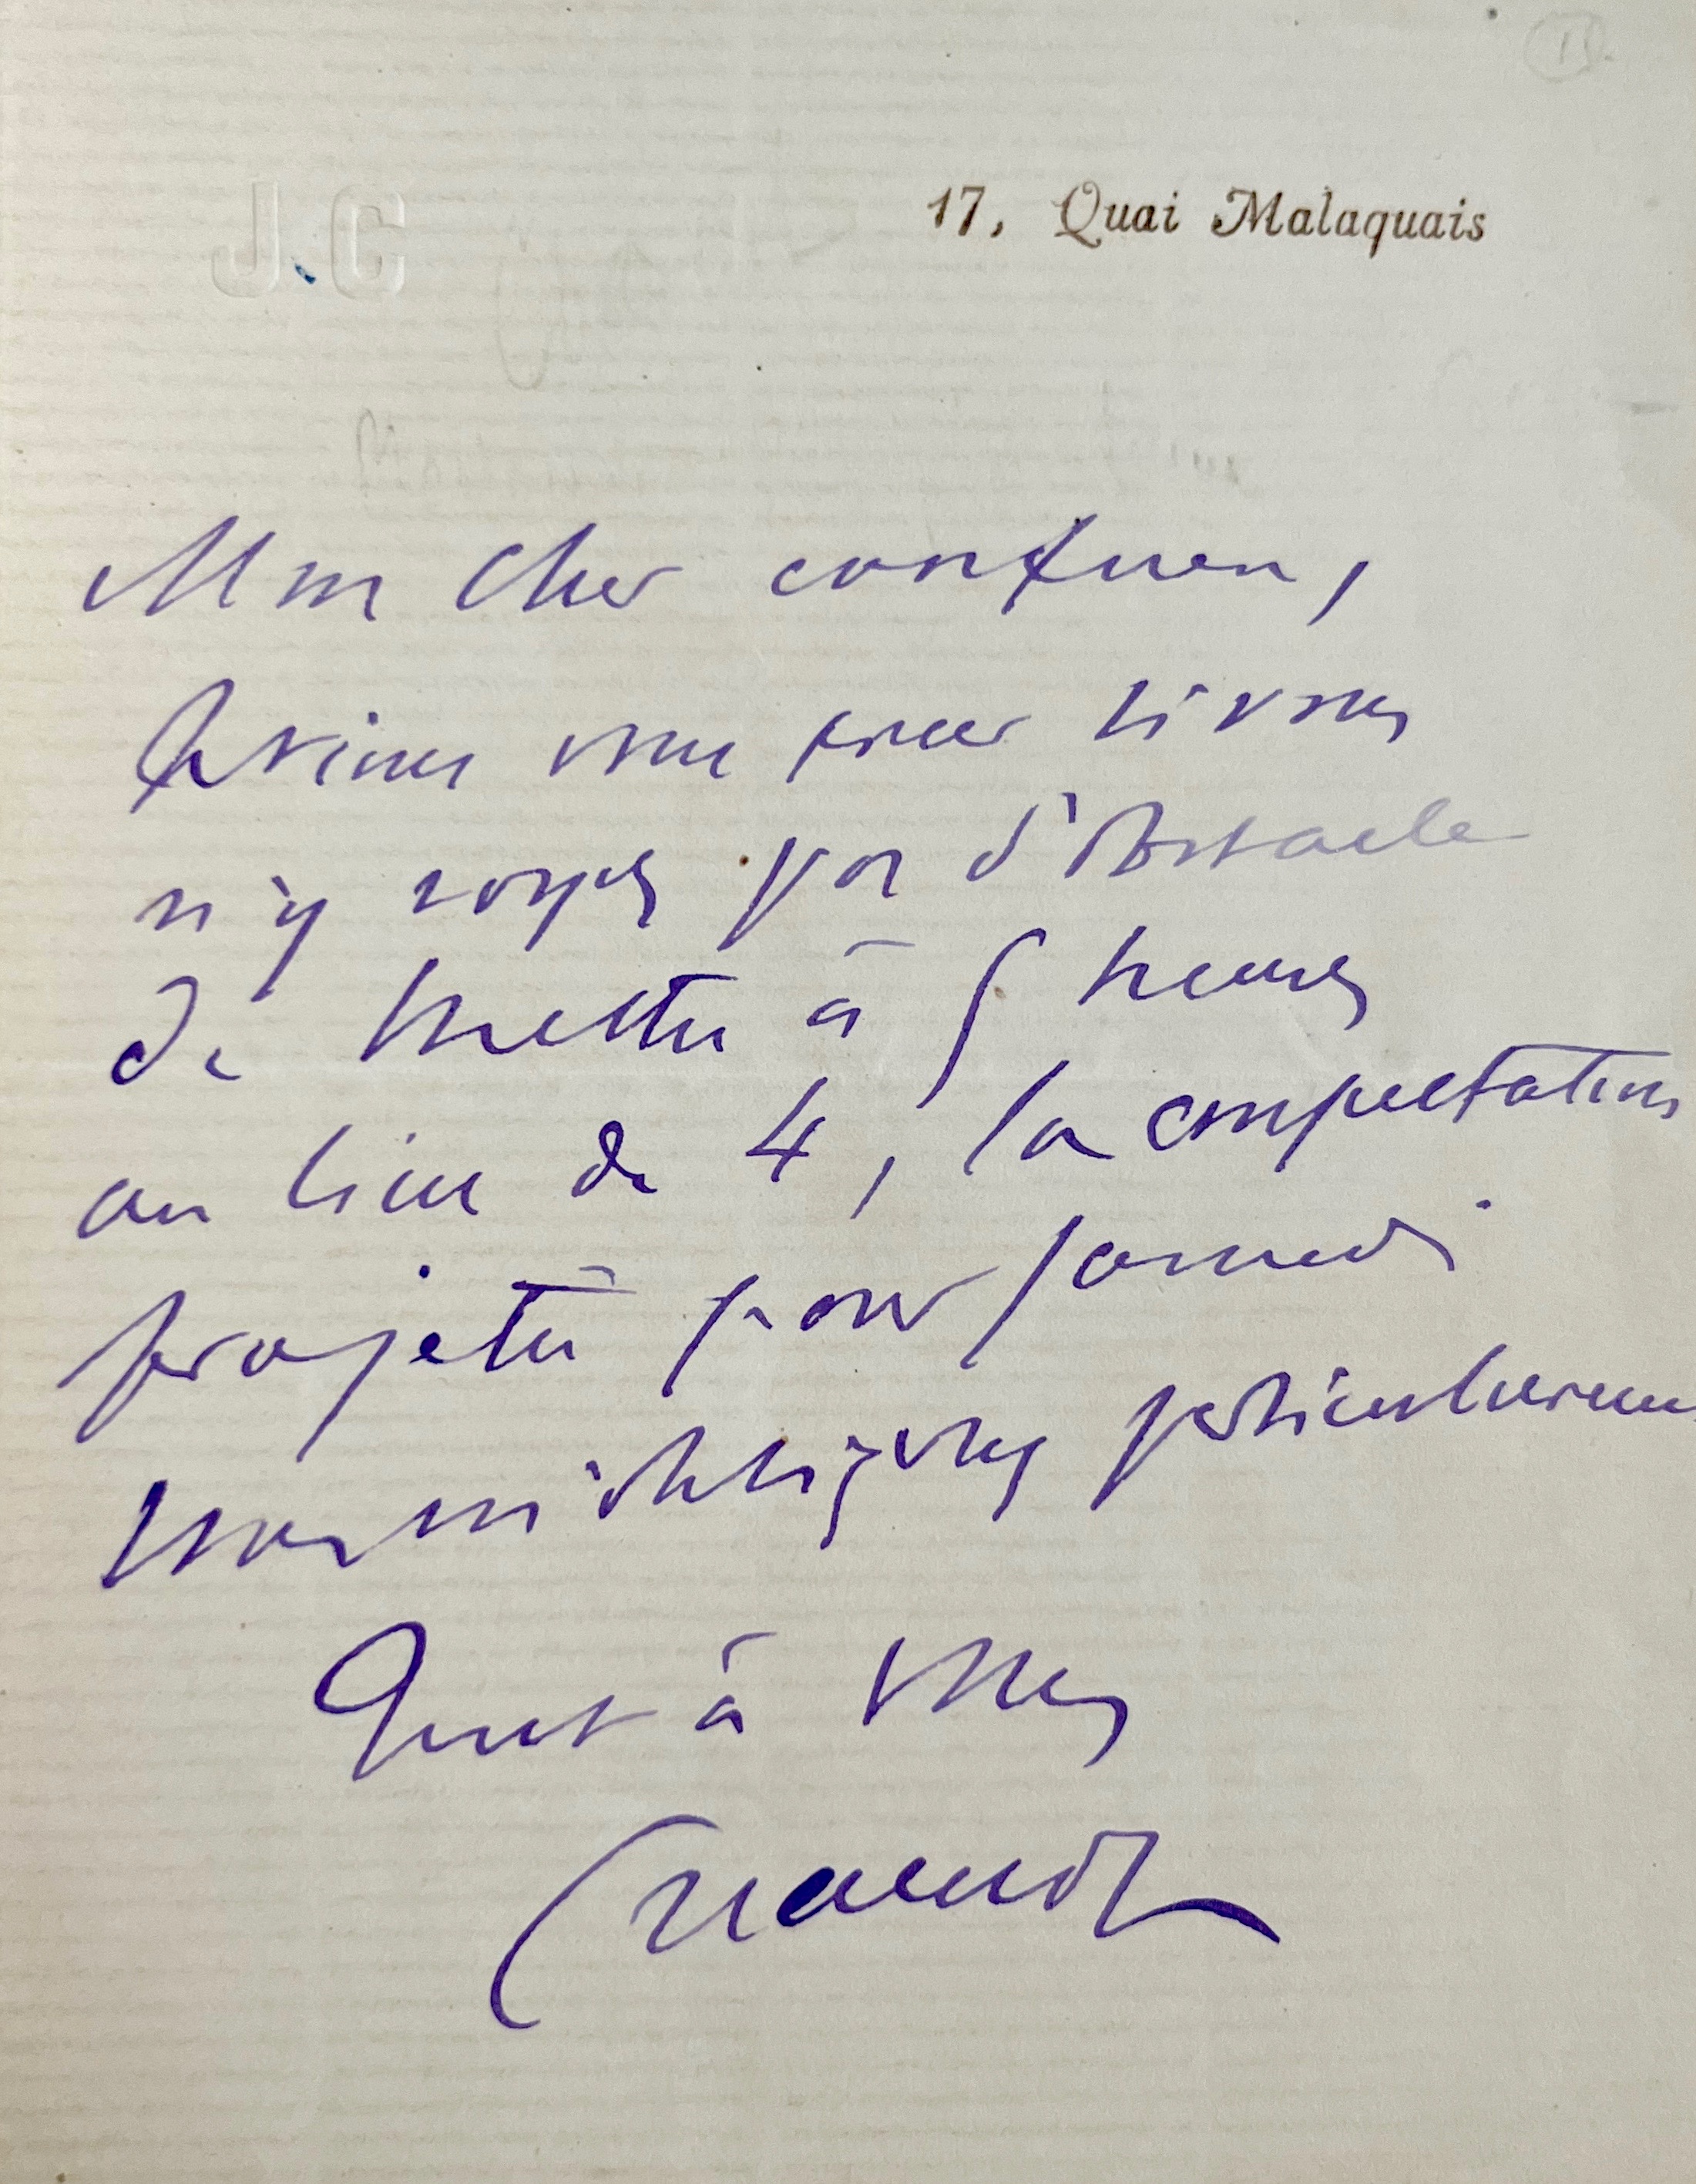 J.C
17, Quai Malaquais
Mon cher confrère,
Je viens vous prier si vous
n'y voyez pas d'obstacle
de mettre à 5 heures
au lieu de 4, la consultation
projetée pour samedi
vous m'obligerez particulièrem
Tout à vous
Charcot